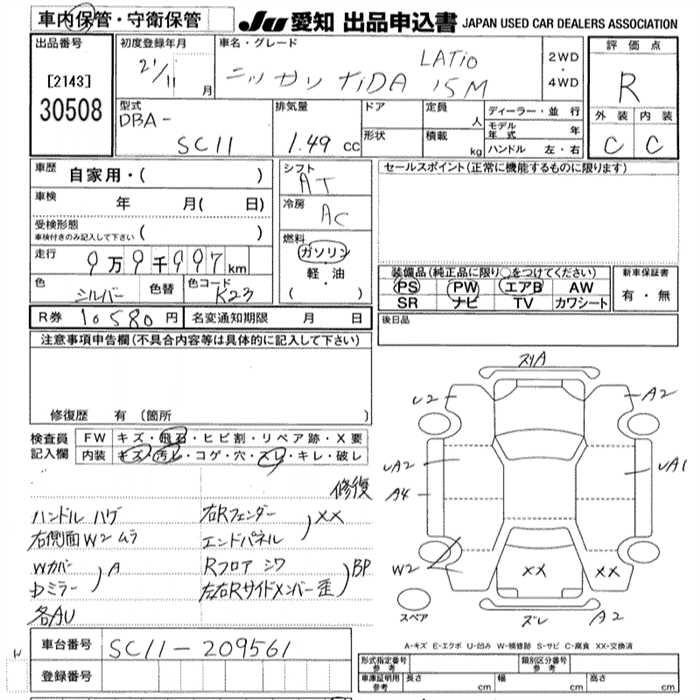 車内保管・守衛保管
JU 愛知 出品申込書 JAPAN USED CAR DEALERS ASSOCIATION
出品番号
[2143]
30508
初度登録年月
21/11 月
車名・グレード
ニッサン TIDA LATIO 15M
2WD
・
4WD
評価点
R
外装 内装
C C
型式
DBA-
SC11
排気量
1.49 cc
ドア
形状
定員
人
積載
kg
ディーラー・並行
モデル年式 年
ハンドル 左・右
車歴 自家用・( )
車検 年 月( 日)
受検形態
車検付きのみ記入して下さい ( )
走行 9万9千997km
色 シルバー 色替 色コード K23
シフト
AT
冷房
AC
燃料
ガソリン
軽・油
・( )
セールスポイント(正常に機能するものに限ります)
装備品(純正品に限り○をつけてください)
PS PW エアB AW
SR ナビ TV カワシート
新車保証書
有・無
R券 10580円 名変通知期限 月 日
後日品
注意事項申告欄(不具合内容等は具体的に記入して下さい)
修復歴 有(箇所 )
検査員記入欄
FW キズ・飛石・ヒビ割・リペア跡・X要
内装 キズ・汚レ・コゲ・穴・スレ・キレ・破レ
修復
ハンドル ハゲ
右側面W2 ムラ
Wカバー
Dミラー ) A
各AU
右Rフェンダー
エンドパネル ) XX
Rフロア シワ
左右Rサイドメンバー歪 ) BP
スリA
U2
A2
UA2
UA1
A4
W2
XX XX
スペア
ズレ
A2
A-キズ E-エクボ U-凹み W-補修跡 S-サビ C-腐食 XX-交換済
車台番号 SC11-209561
登録番号
形式指定番号
参考
類別区分番号
参考
車庫証明用
参考
長さ cm 幅 cm 高さ cm